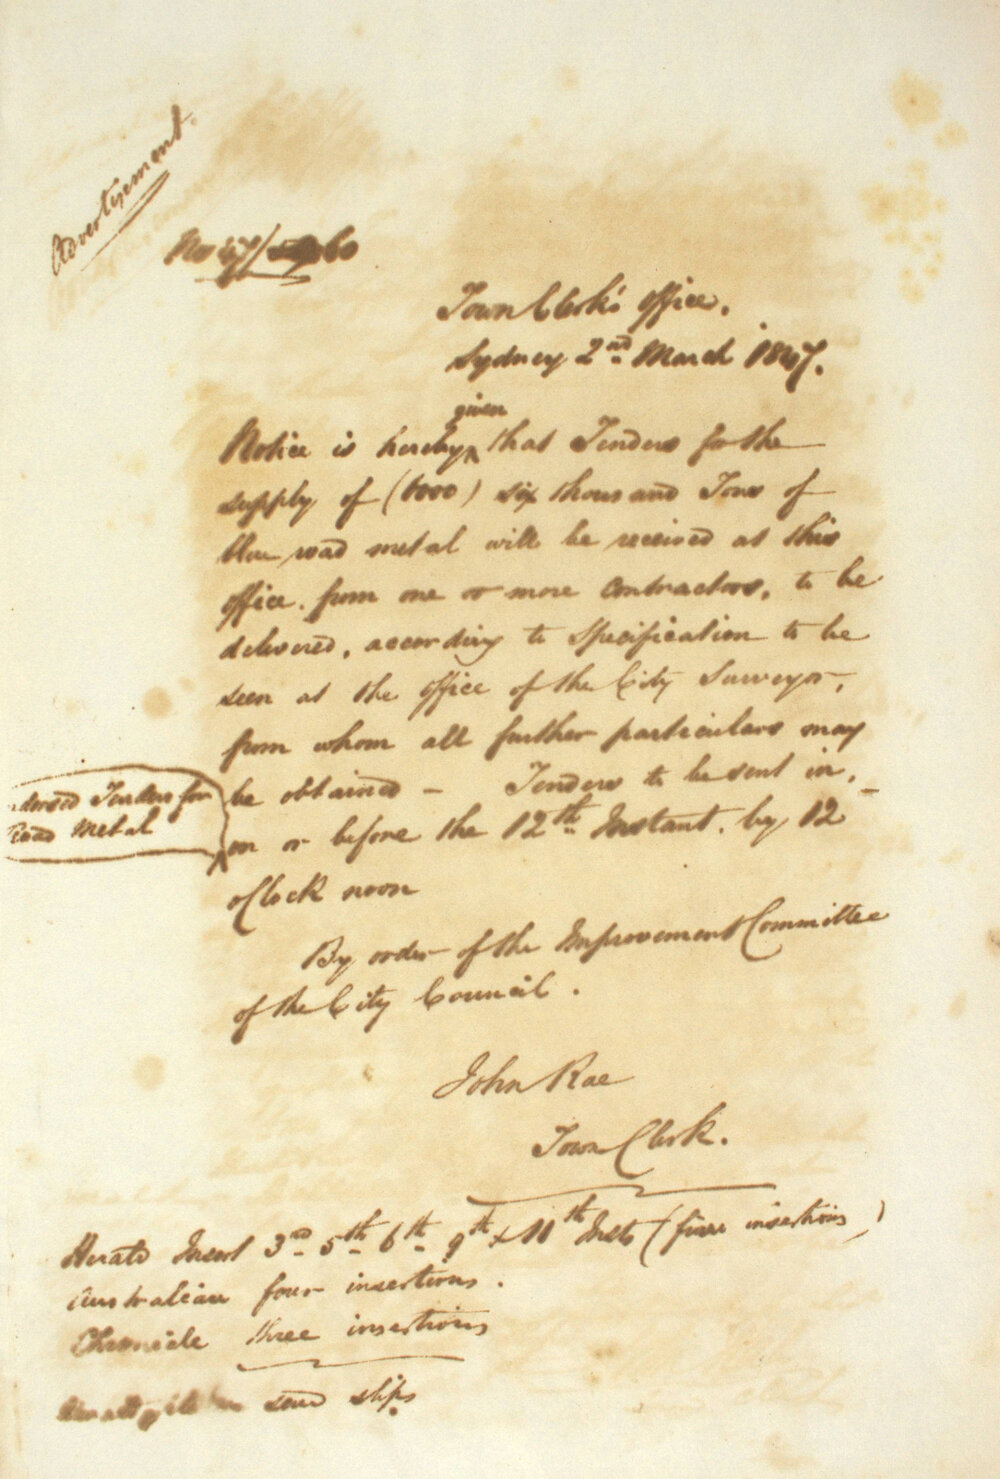 Advertisement.
No 47/ 60
Town Clerk's Office.
Sydney 2nd March 1847.
given
Notice is hereby that Tenders for the
supply of (6000) six thousand Tons of
blue road metal will be received at this
office, from one or more Contractors, to be
delivered, according to Specification to be
seen at the office of the City Surveyor,
from whom all further particulars may
be obtained – Tenders to be sent in,
dorsed Tenders for
Road Metal
on or before the 12th Instant, by 12
oClock noon
By order of the Improvement Committee
of the City Council.
John Rae
Town Clerk.
Herald Insert 3rd 5th 6th 9th & 11th Inst (five insertions)
Australian four insertions.
Chronicle three insertions
send slips